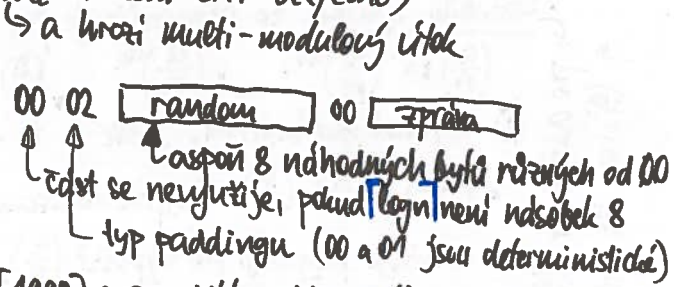 ↳ a hrozí multi-modulový útok
00 02 random 00 zpráva
aspoň 8 náhodných bytů různých od 00
část se nevyužije, pokud ⌈log n⌉ není násobek 8
typ paddingu (00 a 01 jsou deterministické)